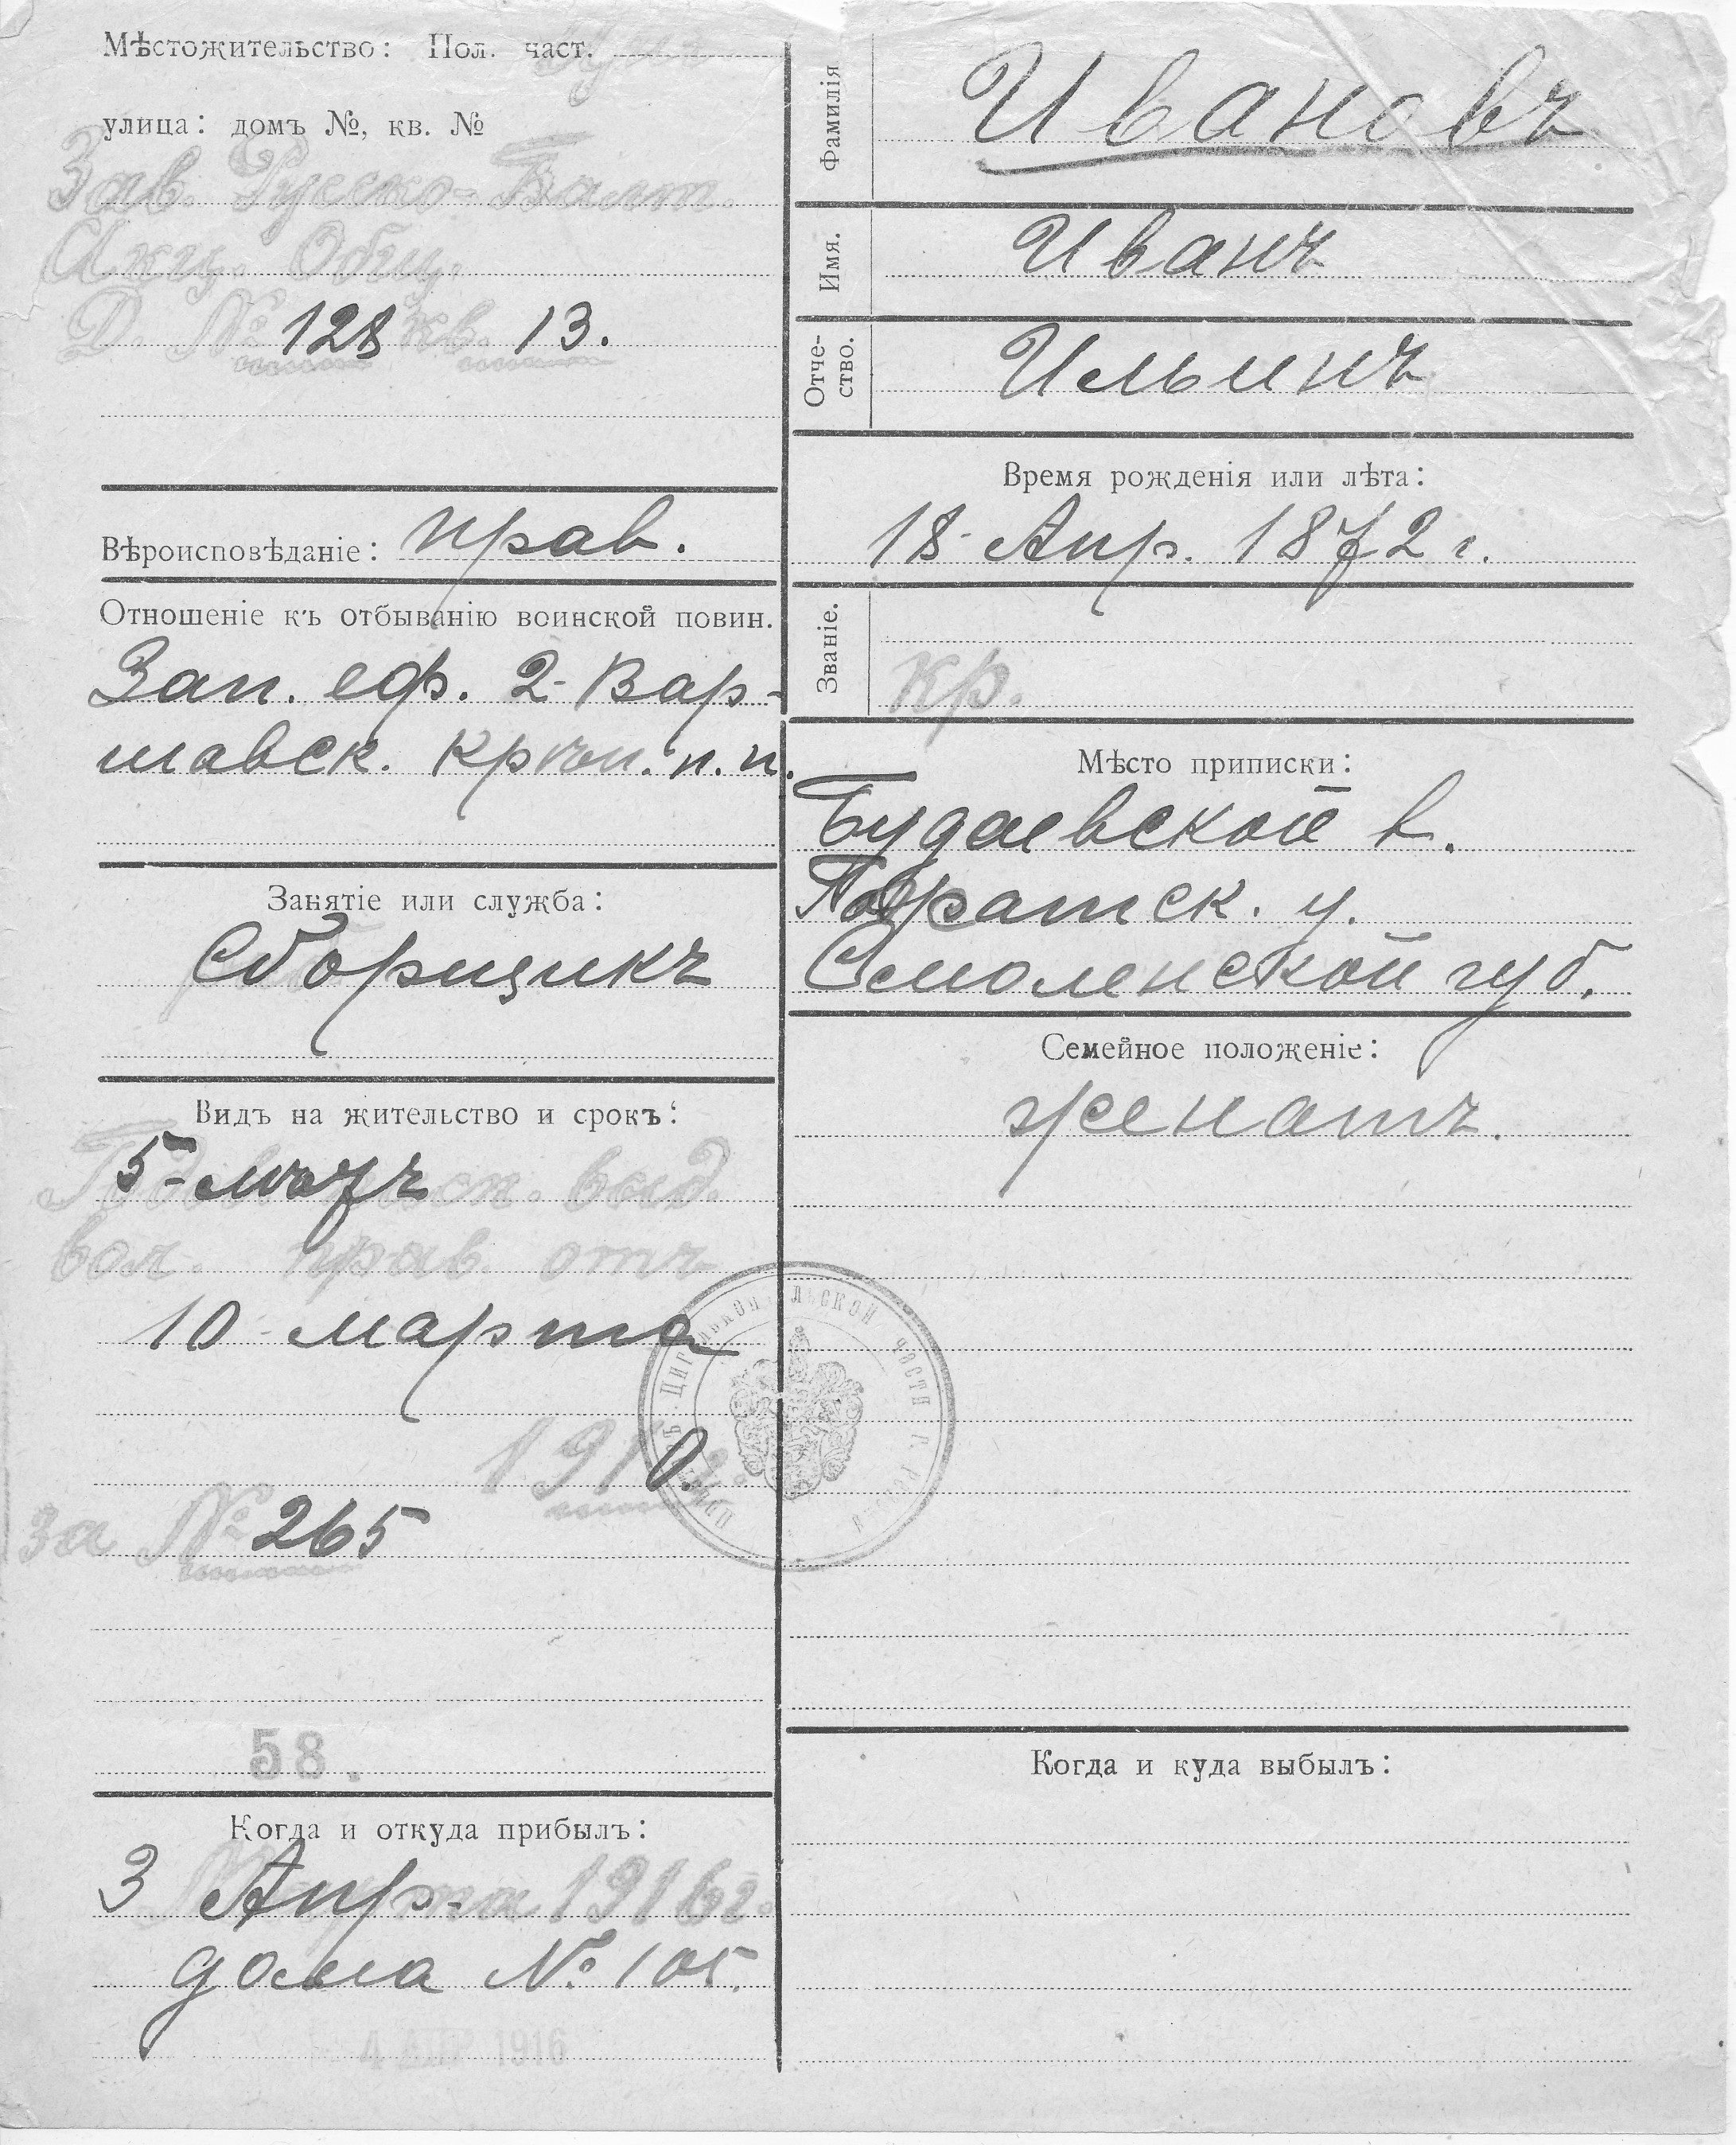 Мѣстожительство: Пол. част.
улица: домъ №, кв. №
Зав. Русско-Балт.
Акц. Общ.
Д. № 128 кв. 13.
Вѣроисповѣданіе: прав.
Отношеніе къ отбыванію воинской повин.
Зап. еф. 2- Вар-
шавск. крѣп. п. п.
Занятіе или служба:
Сборщикъ
Видъ на жительство и срокъ:
5-
выд.
вол. прав. отъ
10 марта
1910.
за № 265
58.
Когда и откуда прибылъ:
3 Апр. 1916 г.
дома № 105.
4 АПР 1916
Фамилія
Ивановъ
Имя.
Иванъ
Отче-
ство.
Ильинъ
Время рожденія или лѣта:
18- Апр. 1872 г.
Званіе.
кр.
Мѣсто приписки:
Будаевской в.
у.
Смоленской губ.
Семейное положеніе:
женатъ.
Когда и куда выбылъ:
части г.